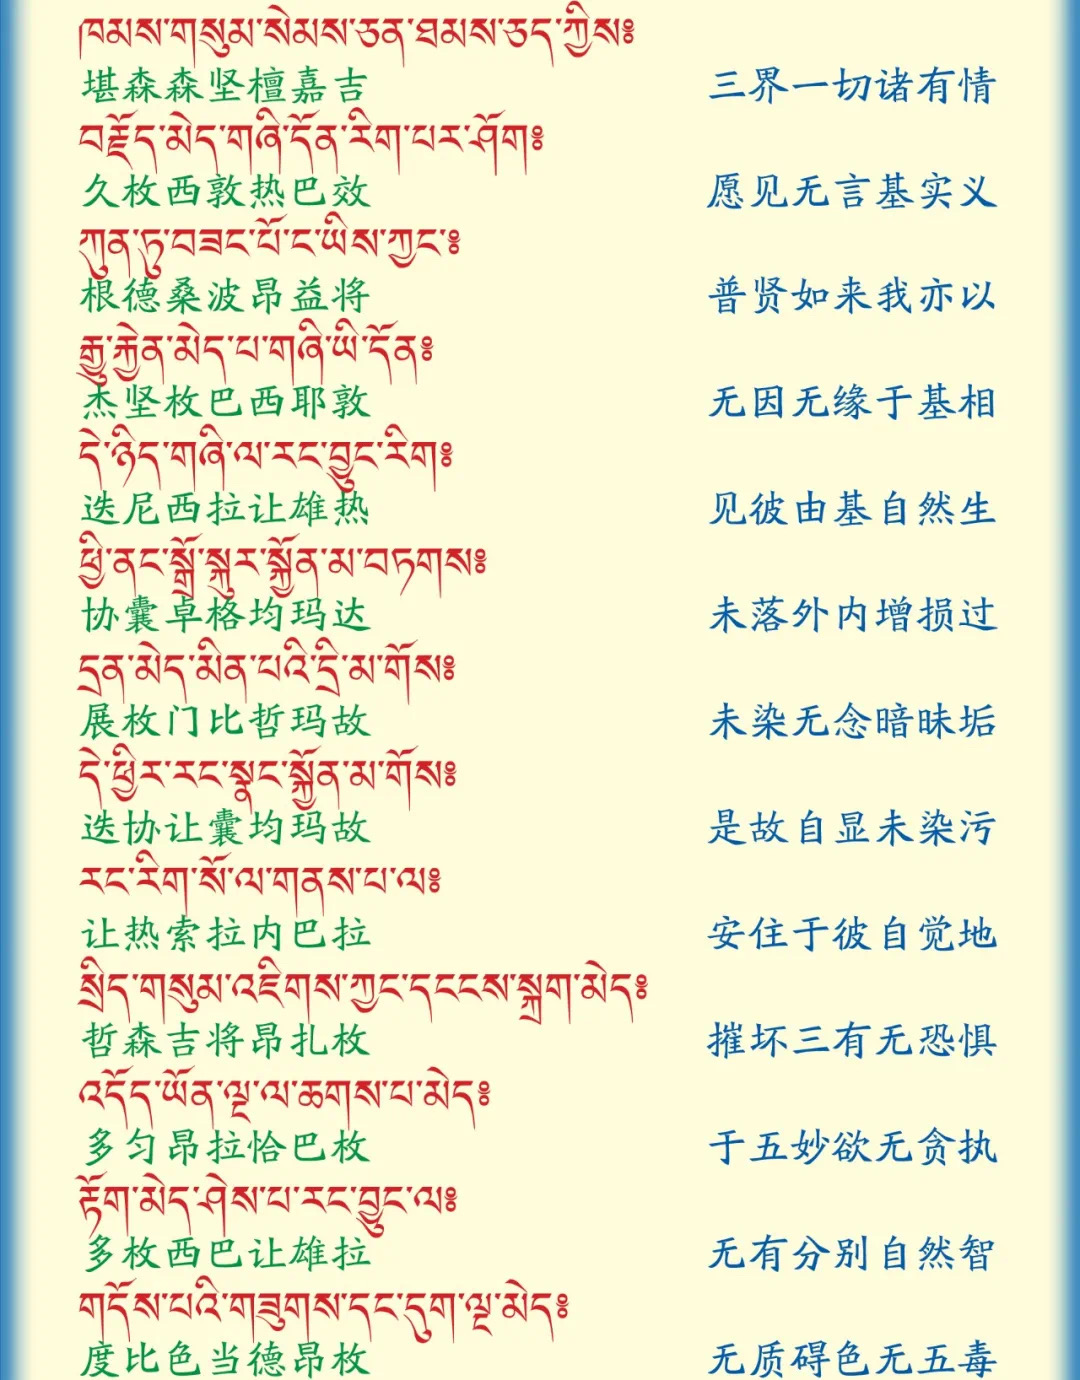 ཁམས་གསུམ་སེམས་ཅན་ཐམས་ཅད་ཀྱིས༔
堪森森坚檀嘉吉 三界一切诸有情
བརྗོད་མེད་གཞི་དོན་རིག་པར་ཤོག༔
久枚西敦热巴效 愿见无言基实义
ཀུན་ཏུ་བཟང་པོ་ང་ཡིས་ཀྱང་༔
根德桑波昂益将 普贤如来我亦以
རྒྱུ་རྐྱེན་མེད་པ་གཞི་ཡི་དོན༔
杰坚枚巴西耶敦 无因无缘于基相
དེ་ཉིད་གཞི་ལ་རང་བྱུང་རིག༔
迭尼西拉让雄热 见彼由基自然生
ཕྱི་ནང་སྒྲོ་སྐུར་སྐྱོན་མ་བཏགས༔
协囊卓格均玛达 未落外内增损过
དྲན་མེད་མིན་པའི་དྲི་མ་གོས༔
展枚门比哲玛故 未染无念暗昧垢
དེ་ཕྱིར་རང་སྣང་སྐྱོན་མ་གོས༔
迭协让囊均玛故 是故自显未染污
རང་རིག་སོ་ལ་གནས་པ་ལ༔
让热索拉内巴拉 安住于彼自觉地
སྲིད་གསུམ་འཇིགས་ཀྱང་དངངས་སྐྲག་མེད༔
哲森吉将昂扎枚 摧坏三有无恐惧
འདོད་ཡོན་ལྔ་ལ་ཆགས་པ་མེད༔
多匀昂拉恰巴枚 于五妙欲无贪执
རྟོག་མེད་ཤེས་པ་རང་བྱུང་ལ༔
多枚西巴让雄拉 无有分别自然智
གདོས་པའི་གཟུགས་དང་དུག་ལྔ་མེད༔
度比色当德昂枚 无质碍色无五毒